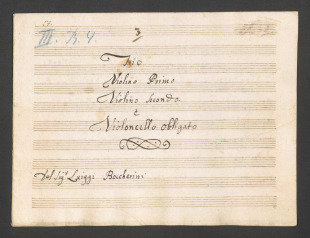 III. B. 4.
3
Trio
Violino Primo
Violino Secondo.
è
Violoncello obligato
Del Sigr Luiggi Boccherini